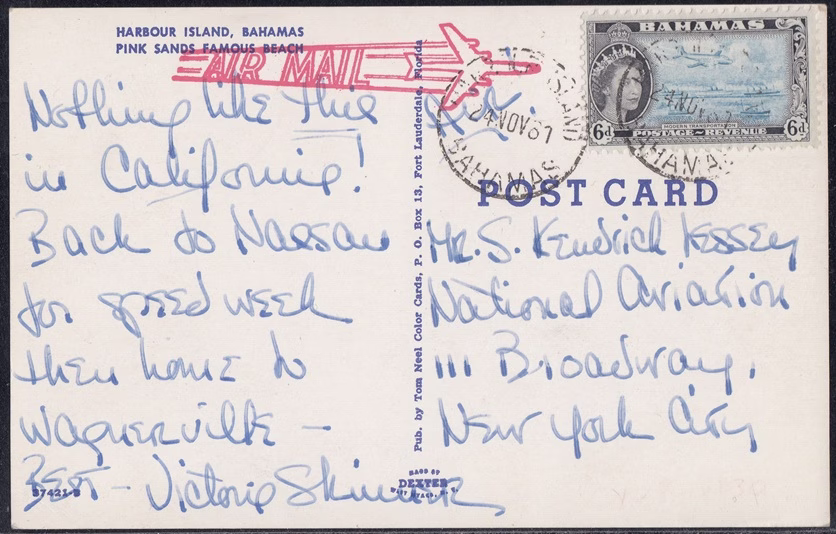 HARBOUR ISLAND, BAHAMAS
PINK SANDS FAMOUS BEACH
AIR MAIL
Nothing like this
in California!
Back to Nassau
for speed week
then home to
Wagnerville –
BEST – Victoria Skinner
37421-B
Pub. by Tom Neel Color Cards, P. O. Box 13, Fort Lauderdale, Florida
MADE BY
DEXTER
WEST NYACK, N. Y.
ISLAND
24 NOV 61
BAHAMAS
BAHAMAS
6d
MODERN TRANSPORTATION
POSTAGE ~ REVENUE
6d
24 NOV
BAHAMAS
POST CARD
Mr. S. Kendrick
National Aviation
111 Broadway,
New York City